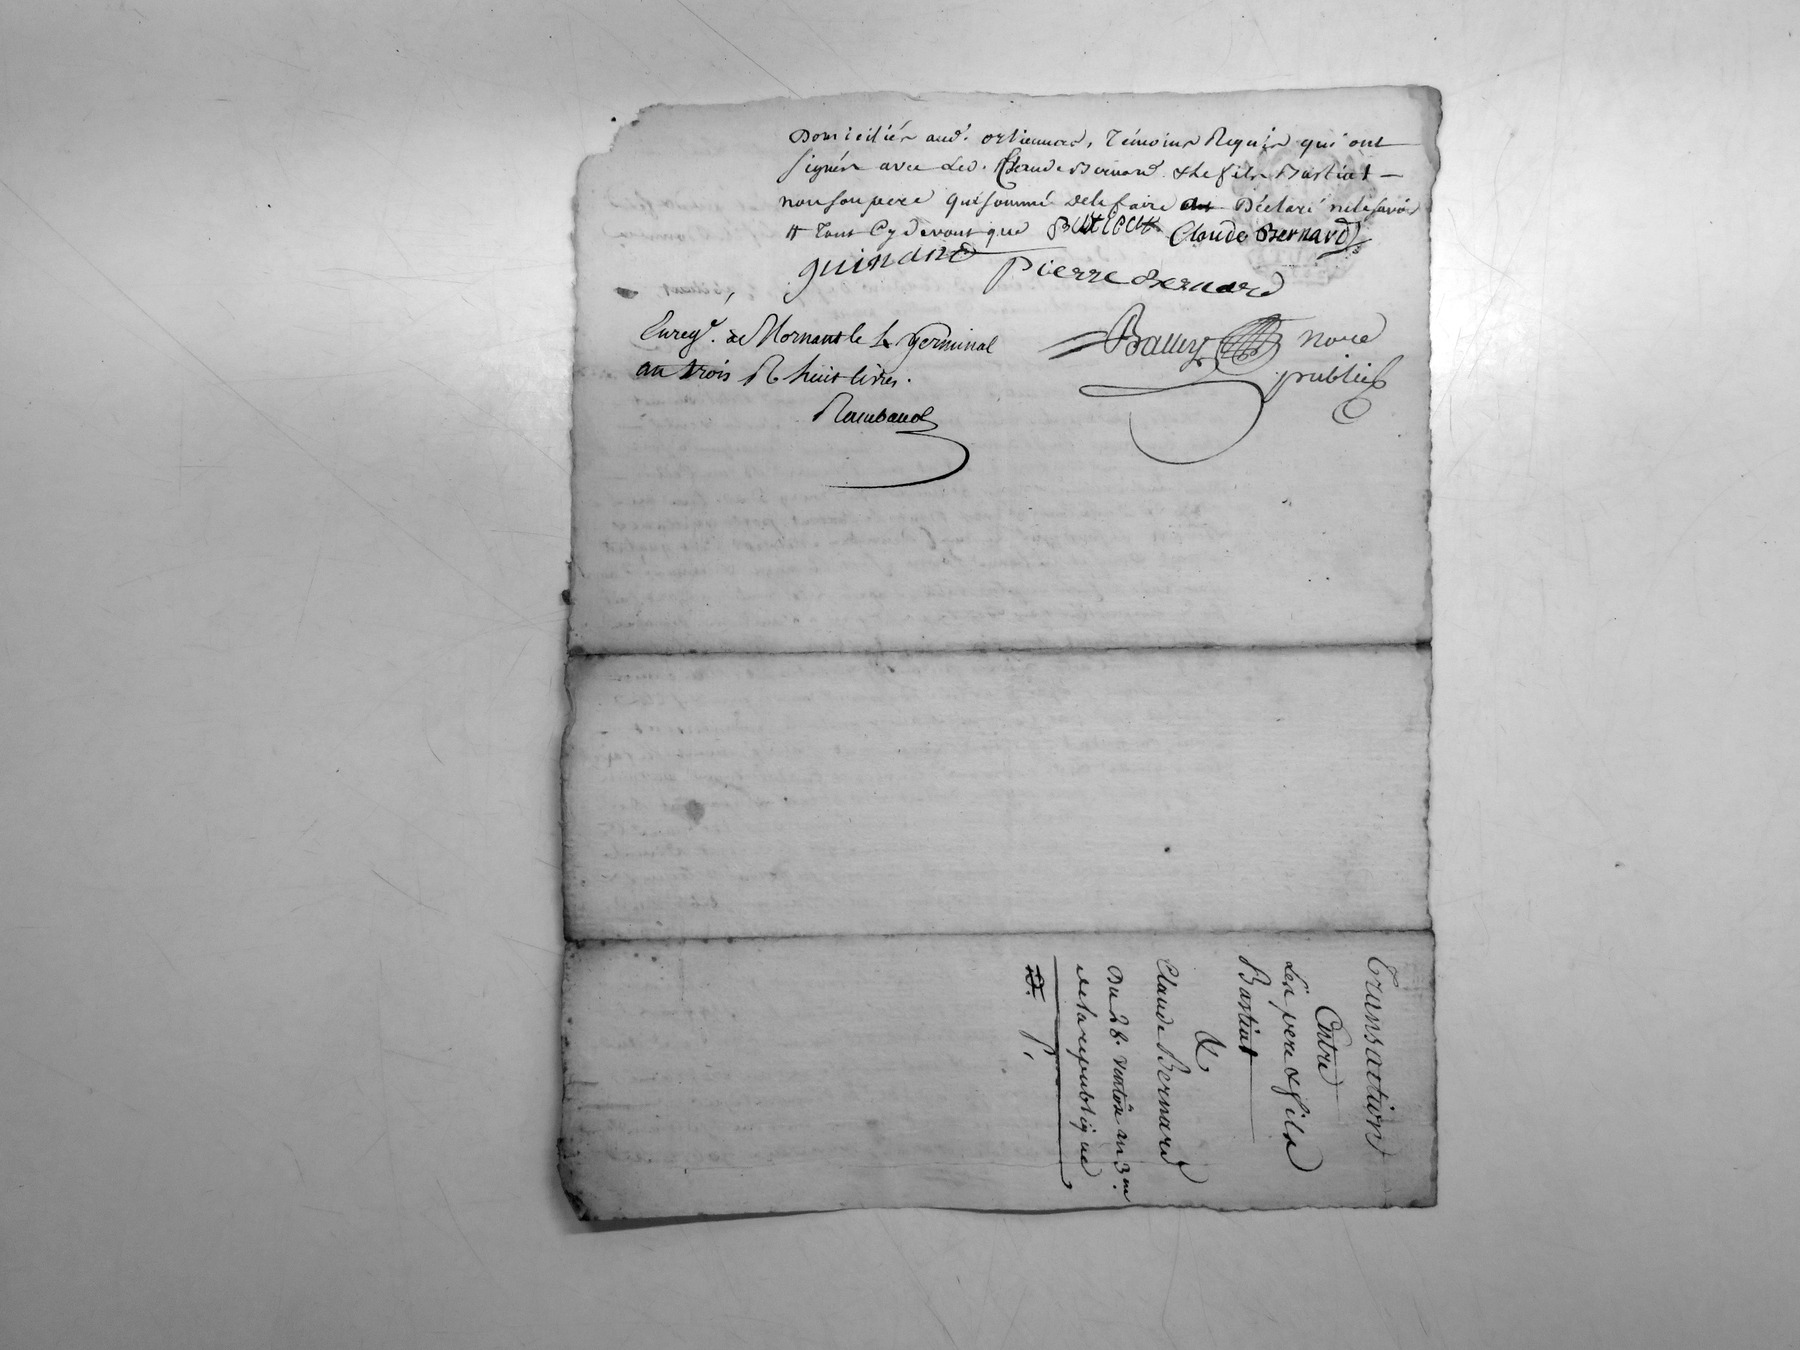 Domiciliés aud. orliennas, Témoins Requis qui ont
signés avec led. Claude Bernard & le fils Bastiat —
non son pere qui sommé de le faire a Déclaré ne le savoir
# Tout cy devant que Claude Bernard
guinand Pierre Bernard
Enregé. a Mornant le germinal
an trois R huit livres.
Bally nore
public
Transaction
Entre
Les pere & fils
Bastiat
&
Claude Bernard
Du 28. ventôse an 3me.
de la republique